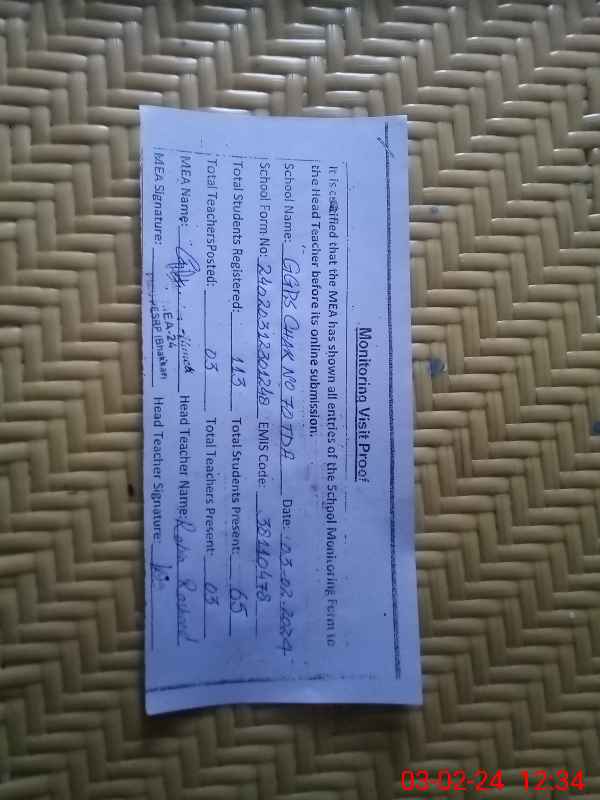 Monitoring Visit Proof
It is certified that the MEA has shown all entries of the School Monitoring Form to
the Head Teacher before its online submission.
School Name: GGPS CHAK NO 70 TDA Date: 03-02-2024
School Form No: EMIS Code: 38110478
Total Students Registered: 113 Total Students Present: 65
Total TeachersPosted: 03 Total Teachers Present: 03
MEA Name: Head Teacher Name: Rasheed
MEA Signature: Head Teacher Signature:
EA-24
(Bhakkar)
03-02-24 12:34